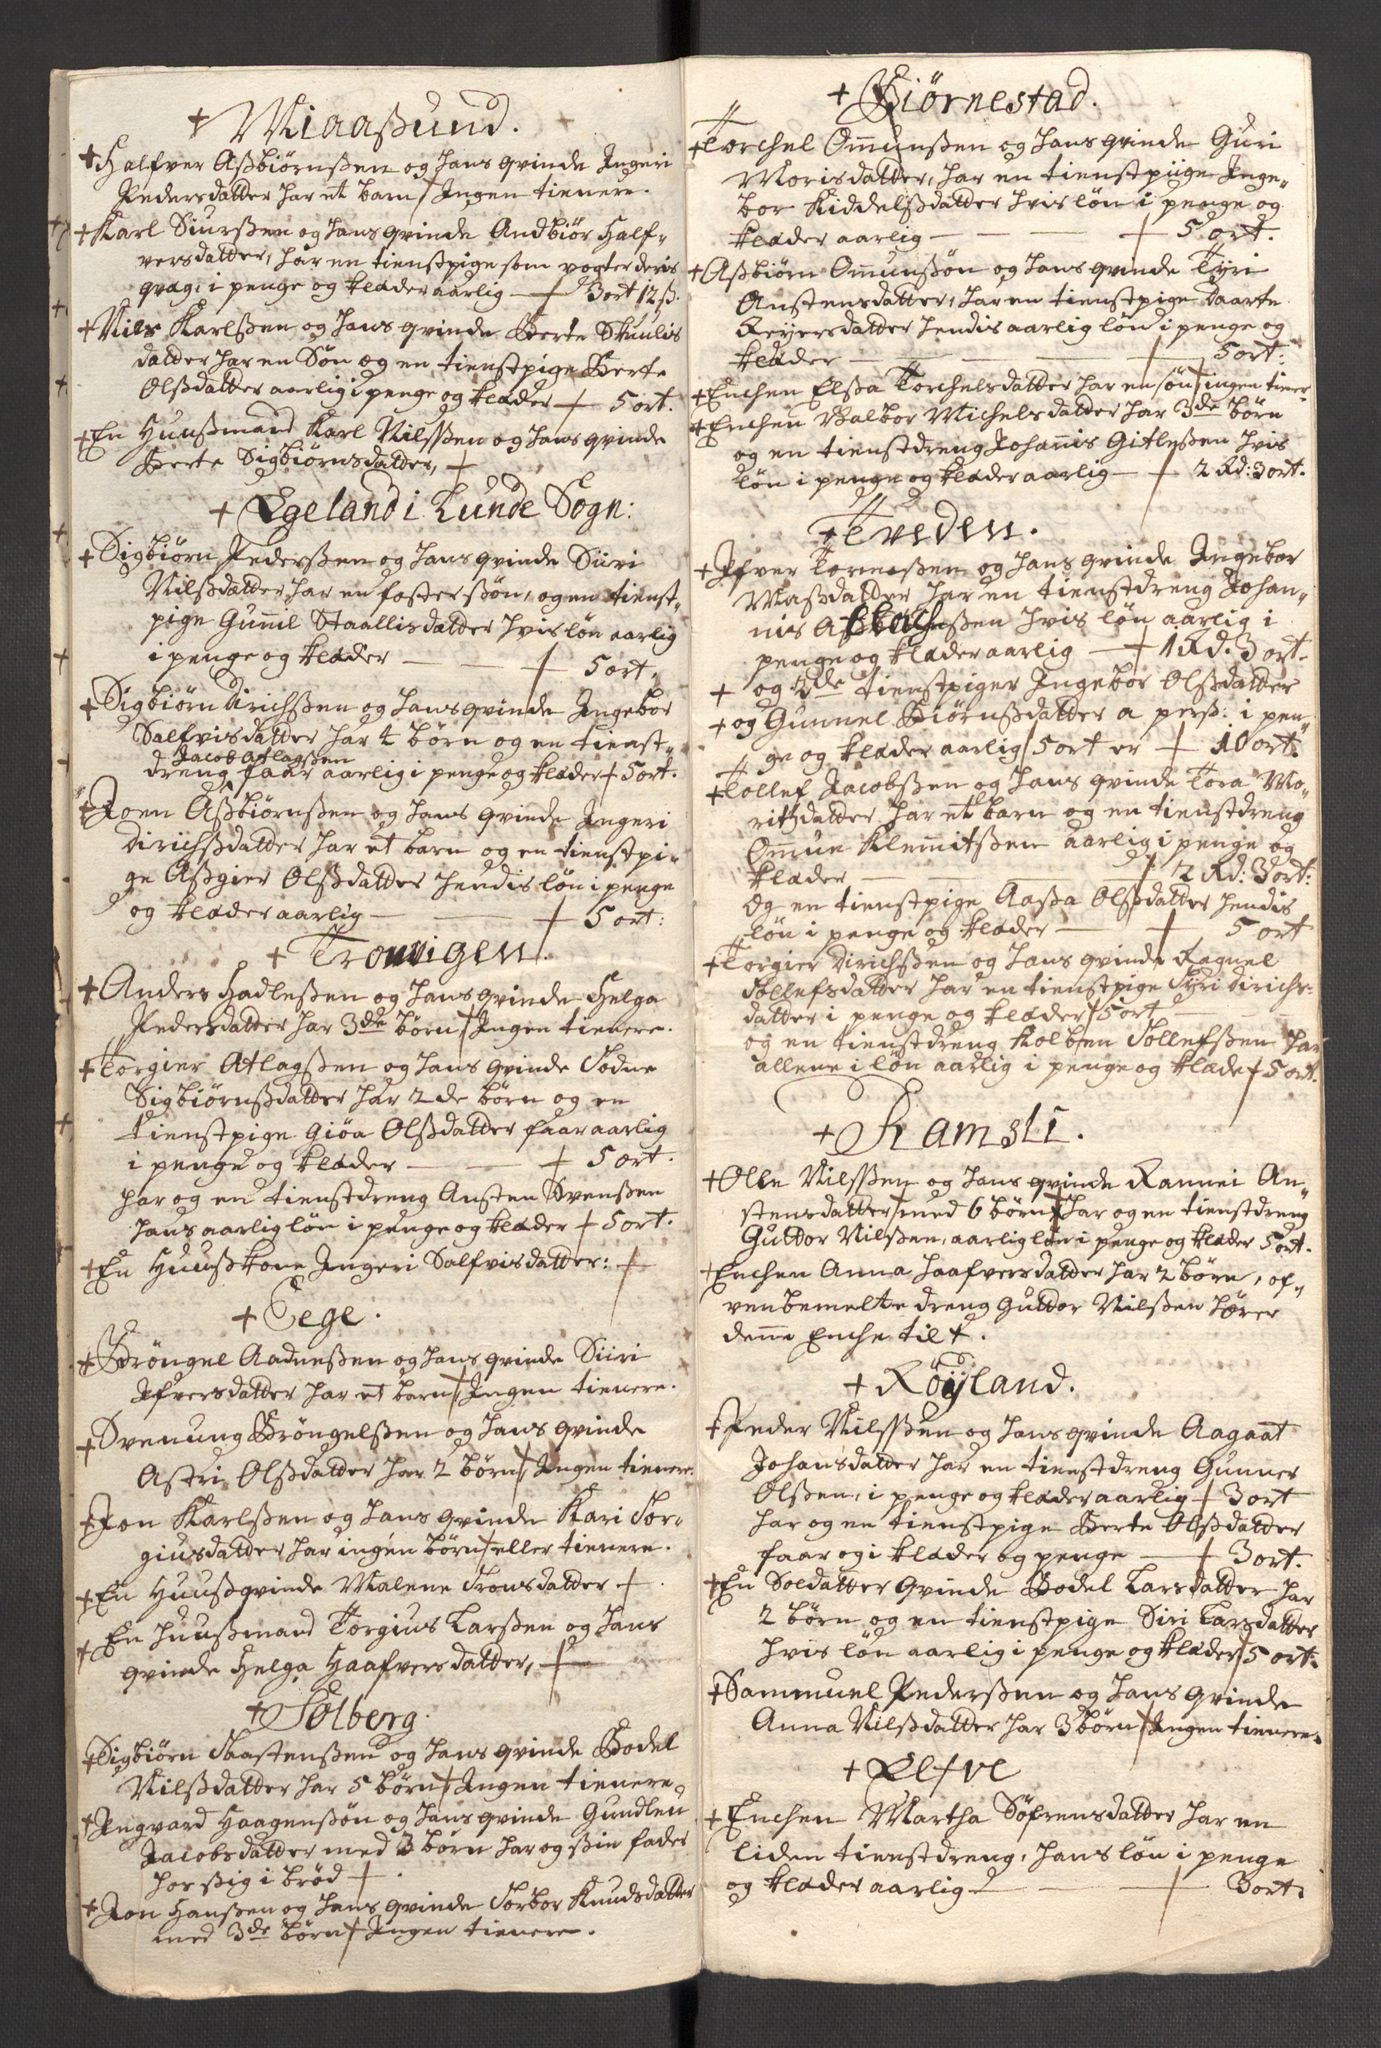 + Miaaßund.
+ Halfver Aßbiørnßen og hans qvinde Ingeri
Pedersdatter har et barn / Ingen tienere.
+ Karl Siurßen og hans qvinde Andbiør Half-
versdatter, har en tienstpige som vogter deris
qvæg, i penge og klæder aarlig — + 3 ort 12 ß.
+ Nils Karlßen og hans qvinde Berte Skuulis
datter har en Søn og en tienstpige Berte
Olßdatter aarlig i penge og klæder + 5 ort.
+ En Huußmand Karl Nilßen og hans qvinde
Berte Sigbiørnsdatter, +
+ Egeland i Lunde Sogn:
+ Sigbiørn Pederßen og hans qvinde Siiri
Nilßdatter har en foster søn, og en tienst-
pige Gunnil Staallisdatter hvis løn aarlig
i penge og klæder — — + 5 ort.
+ Sigbiørn Dirichßen og hans qvinde Ingebor
Salfvisdatter har 4 børn og en tienst-
Jacob Atlagßen
dreng faar aarlig i penge og klæder + 5 ort.
+ Joen Aßbiørnßen og hans qvinde Ingeri
Dirichßdatter har et barn og en tienstpi-
ge Aßgier Olßdatter hendis løn i penge
og klæder aarlig — — + 5 ort:
+ Tronvigen.
+ Anders Hadleßen og hans qvinde Helga
Pedersdatter har 3de børn / Ingen tienere.
+ Torgier Atlagßen og hans qvinde Todne
Sigbiørnßdatter har 2de børn og en
tienstpige Giøa Olßdatter faar aarlig
i penge og klæder — — + 5 ort.
har og en tienstdreng Austen Svenßen
hans aarlig løn i penge og klæder + 5 ort.
+ En Huußkone Ingeri Salfvisdatter: +
+ Eege.
+ Brøngel Aadneßen og hans qvinde Siiri
Ifversdatter har et barn / Ingen tienere.
+ Svenung Brøngelßen og hans qvinde
Astri Olßdatter har 2 børn / Ingen tienere.
+ Jon Karlßen og hans qvinde Kari Tor-
giusdatter har ingen børn / eller tienere.
+ En Huußqvinde Malene Tronsdatter +
+ En huußmand Torgius Larßen og hans
qvinde Helga Haafversdatter, +
+ Solberg.
+ Sigbiørn Taastenßen og hans qvinde Bodel
Nilßdatter har 5 børn / Ingen tienere
+ Ingvard Haagenßøn og hans qvinde Gundleu
Jacobsdatter med 3 børn har og ßin fader
hos ßig i brød +
+ Jon Hanßen og hans qvinde Torbor Knudsdatter
med 3de børn / Ingen tienere.
+ Biørnestad.
+ Torchel Ommunßen og hans qvinde Guri
Morisdatter, har en tienstpiige Inge-
bor Kiddelßdatter hvis løn i penge og
klæder aarlig — — + 5 ort.
+ Aßbiørn Ommunßøn og hans qvinde Tyri
Austensdatter, har en tienstpige Daarte
Reyersdatter hendis aarlig løn i penge og
klæder — — + 5 ort:
+ Enchen Elßa Torchelsdatter har en søn / ingen tiener
+ Enchen Valbor Michelsdatter har 3de børn
og en tienstdreng Johannis Gitleßen hvis
løn i penge og klæder aarlig — + 2 Rd: 3 ort.
+ Tveden.
+ Ifver Tormoßen og hans qvinde Ingebor
Maßdatter har en tienstdreng Johan-
nis ßen hvis løn aarlig i
penge og klæder aarlig — + 1 Rd. 3 ort.
+ og 2de tienstpiger Ingebor Olßdatter
+ og Gunnel Biørnßdatter a perß: i pen-
ge og klæder aarlig / 5 ort er + 10 ort.
+ Tollef Jacobßen og hans qvinde Tora Mo-
ritzdatter, har et barn og en tienstdreng
Ommun Klemmitßen aarlig i penge og
klæder — — + 2 Rd: 3 ort:
Og en tienstpige Aaßa Olßdatter hendis
løn i penge og klæder — + 5 ort
+ Torgier Dirichßen og hans qvinde Ragnel
Tollefsdatter har en tienstpige Tyri Dirichs-
datter i penge og klæder / 5 ort
og en tienstdreng Kolben Tollefßen har
allene i løn aarlig i penge og klæder + 5 ort.
+ Ramsli.
+ Olle Nilßen og hans qvinde Rannei Au-
stensdatter / med 6 børn / har og en tienstdreng
Guttor Nilßen, aarlig løn i penge og klæder 5 ort.
+ Enchen Anna Haafversdatter har 2 børn, of-
venbemelte dreng Guttor Nilßen hører
denne Enche til +.
+ Røyland.
+ Peder Nilßen og hans qvinde Aagaat
Johansdatter har en tienstdreng Gunner
Olßen, i penge og klæder aarlig + 3 ort
har og en tienstpige Berte Olßdatter
faar og i klæder og penge — + 3 ort.
+ En Soldatter qvinde Bodel Larsdatter har
2 børn og en tienstpige Siri Larsdatter
hvis løn aarlig i penge og klæder / 5 ort.
+ Sammuel Pederßen og hans qvinde
Anna Nilßdatter har 3 børn / Ingen tienere.
+ Elfve
+ Enchen Martha Søfrensdatter har en
liden tienstdreng, hans løn i penge
og klæder aarlig — — + 3 ort.